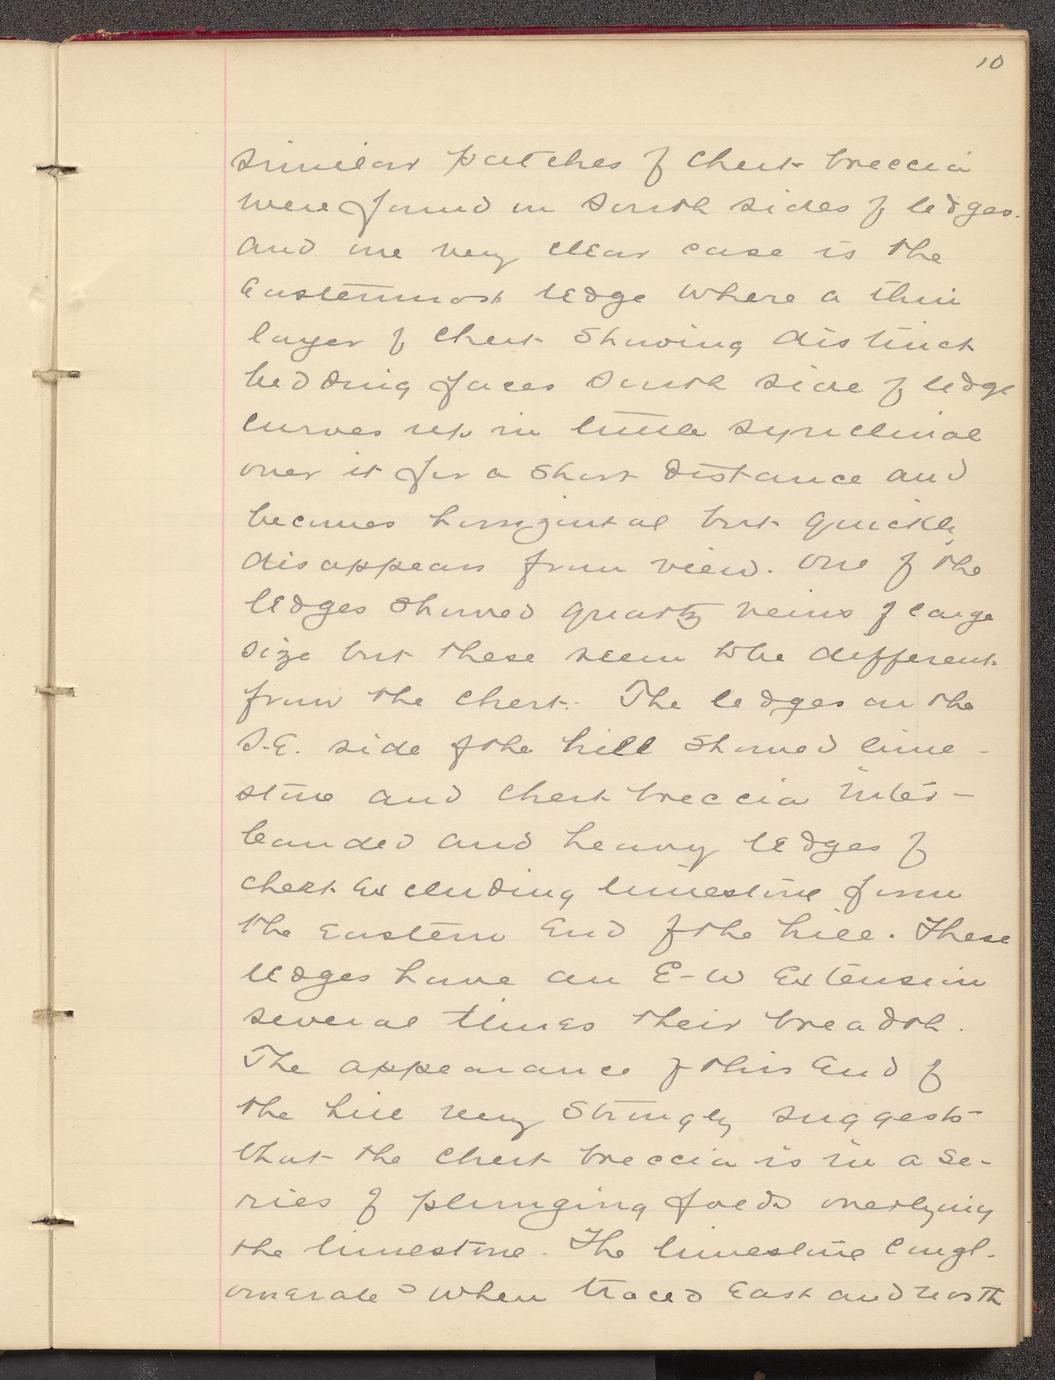 10
Similar patches of chert breccia
were found on south sides of ledges.
and one very clear case is the
Easternmost ledge where a thin
layer of chert showing distinct
bedding faces south side of ledge
curves up in little synclinal
over it for a short distance and
becomes horizontal but quickly
disappears from view. One of the
ledges showed quartz veins of large
size but these seem to be different
from the chert. The ledges on the
S.E. side of the hill showed lime-
stone and chert breccia inter-
banded and heavy ledges of
chert excluding limestone form
the eastern end of the hill. These
ledges have an E-W extension
several times their breadth.
The appearance of this end of
the hill very strongly suggests
that the chert breccia is in a se-
ries of plunging folds overlying
the limestone. The limestone congl-
omerate when traced East and north